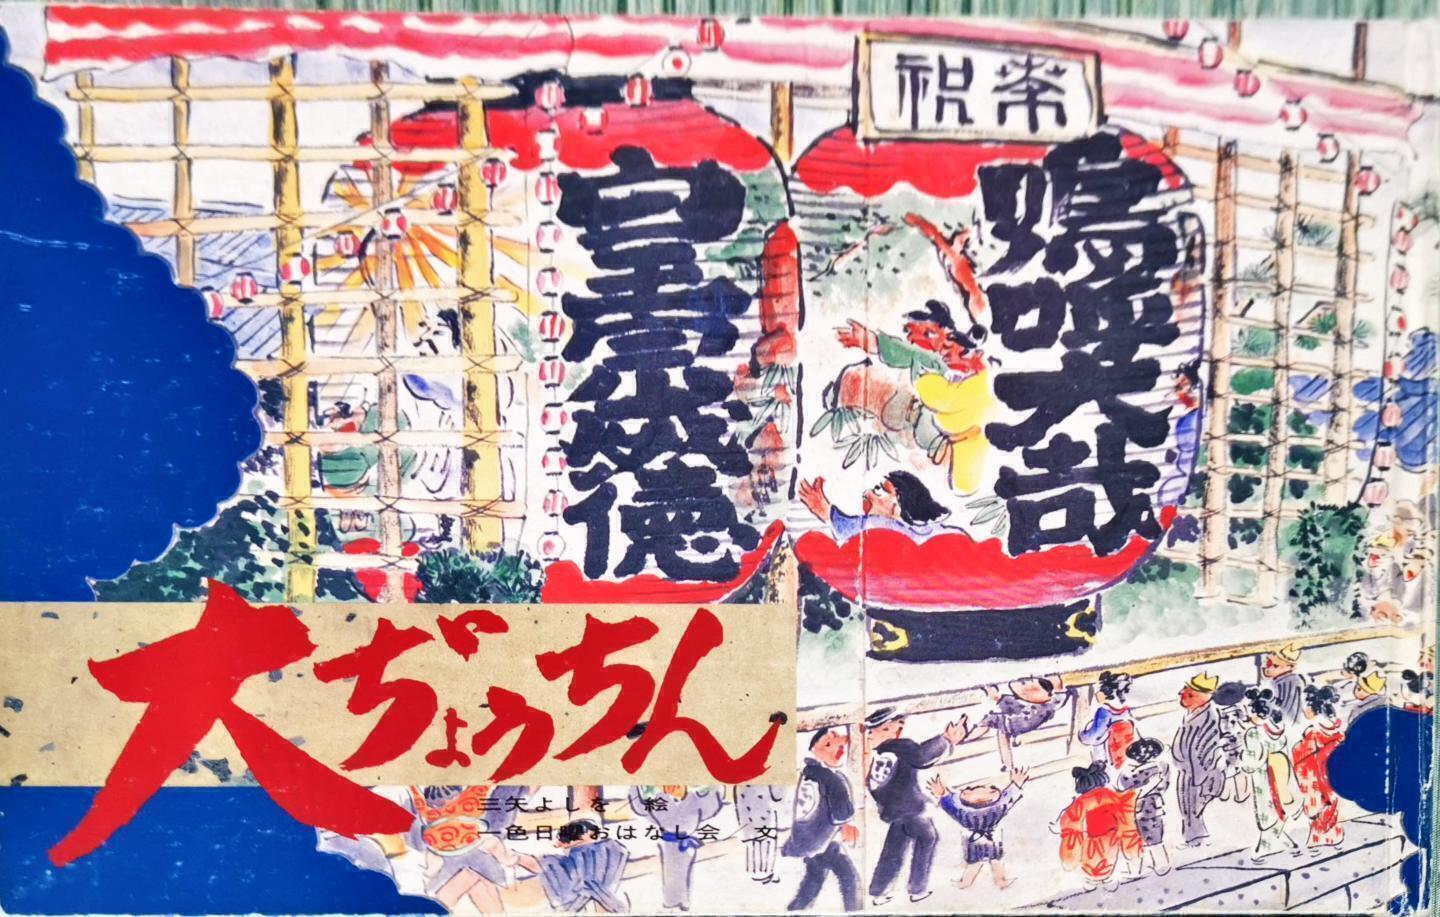 祝
嗚呼大哉
皇 徳
大ぢょうちん
三矢よしを 絵
一色日曜おはなし会 文